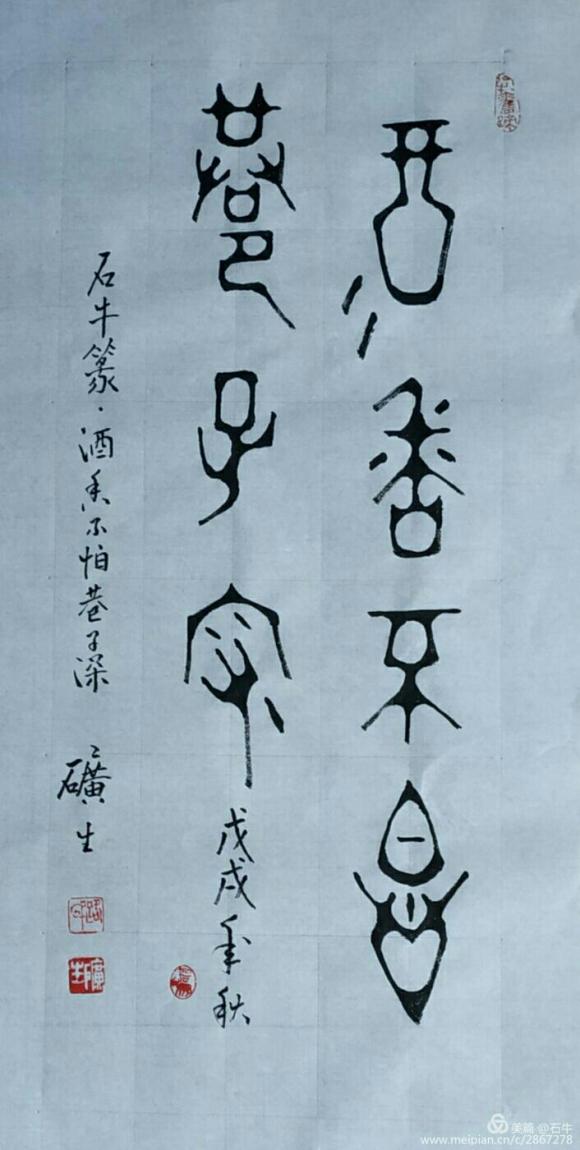 酒香不怕
巷子深
戊戌年秋
石牛篆·酒香不怕巷子深
礦生
美篇 @石牛
www.meipian.cn/c/2867278